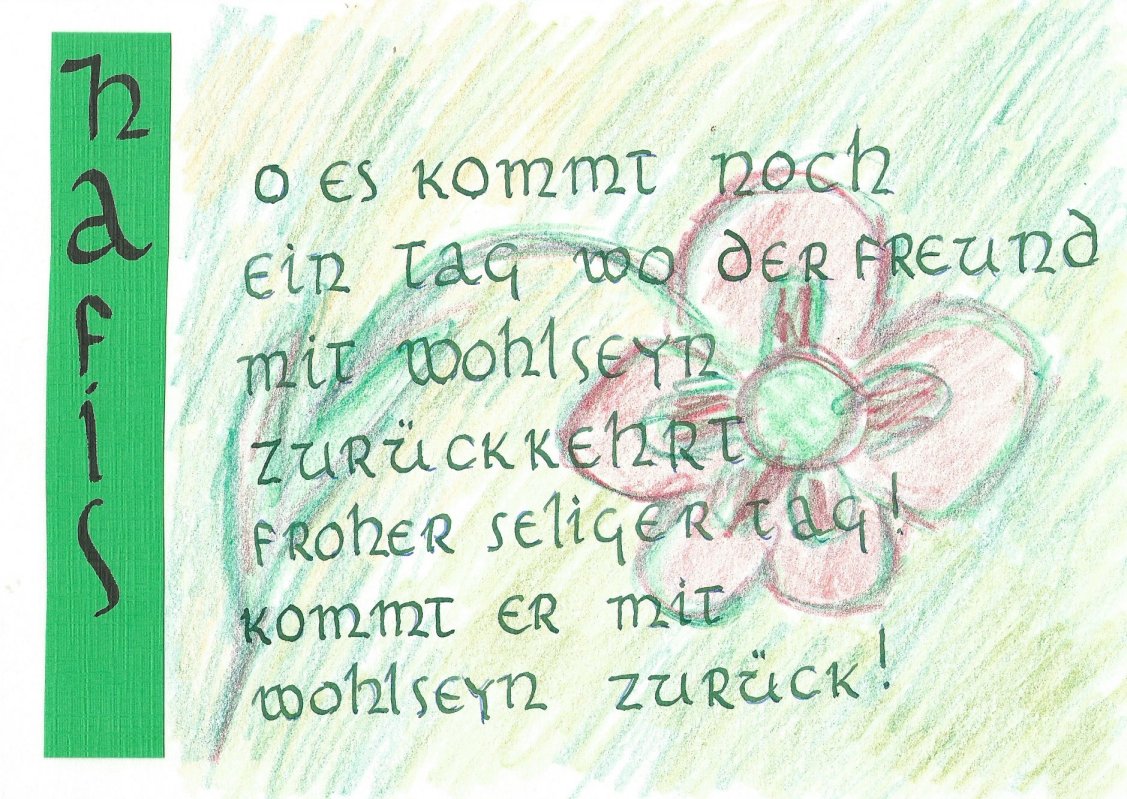 hafis
O ES KOMMT NOCH
EIN TAG WO DER FREUND
MIT WOHLSEYN
ZURÜCKKEHRT
FROHER SELIGER TAG!
KOMMT ER MIT
WOHLSEYN ZURÜCK!